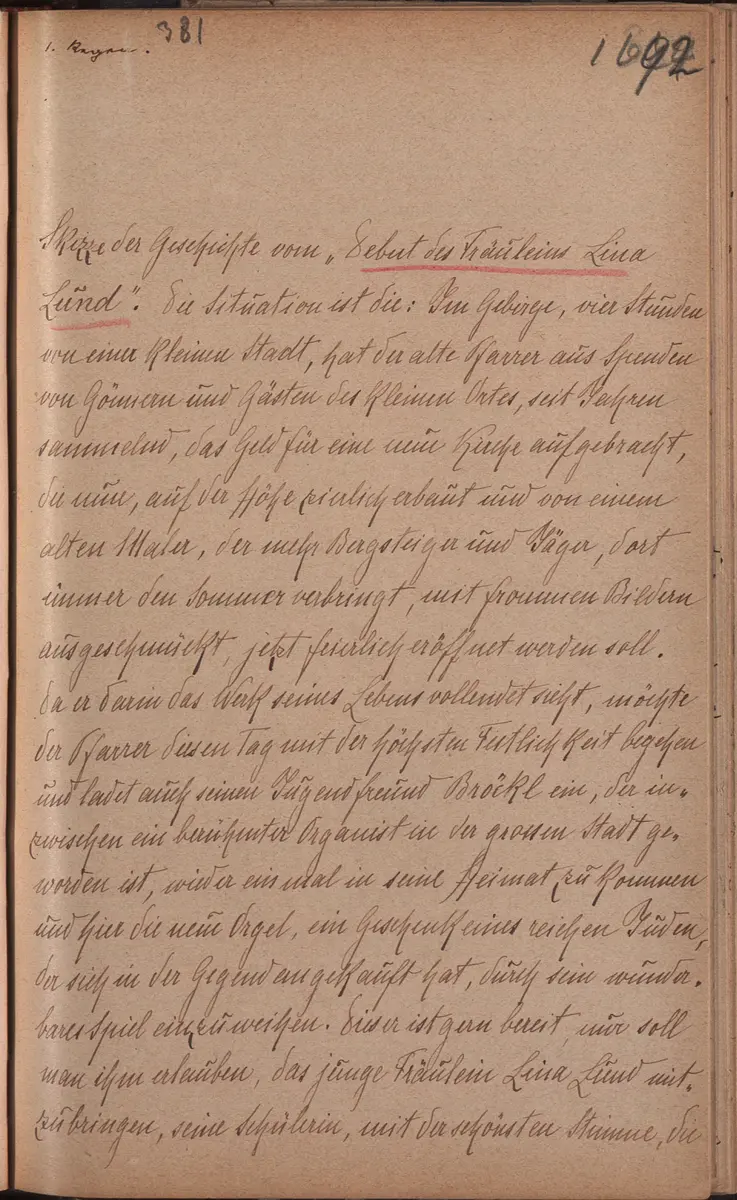 381
1692
Skizze der Geschichte vom „Debut des Fräuleins Lina
Lund". Die Situation ist die: Im Gebirge, vier Stunden
von einer kleinen Stadt, hat der alte Pfarrer aus Spenden
von Gönnern und Gästen des kleinen Ortes, seit Jahren
sammelnd, das Geld für eine neue Kirche aufgebracht,
die nun, auf der Höhe zierlich erbaut und von einem
alten Maler, der mehr Bergsteiger und Jäger, dort
immer den Sommer verbringt, mit frommen Bildern
ausgeschmückt, jetzt feierlich eröffnet werden soll.
Da er darin das Werk seines Lebens vollendet sieht, möchte
der Pfarrer diesen Tag mit der höchsten Festlichkeit begehen
und ladet auch seinen Jugendfreund Bröckl ein, der in-
zwischen ein berühmter Organist in der grossen Stadt ge-
worden ist, wieder einmal in seine Heimat zu kommen
und hier die neue Orgel, ein Geschenk eines reichen Juden,
der sich in der Gegend angekauft hat, durch sein wunder-
bares Spiel einzuweihen. Dieser ist gern bereit, nur soll
man ihm erlauben, das junge Fräulein Lina Lund mit-
zubringen, seine Schülerin, mit der schönsten Stimme, die